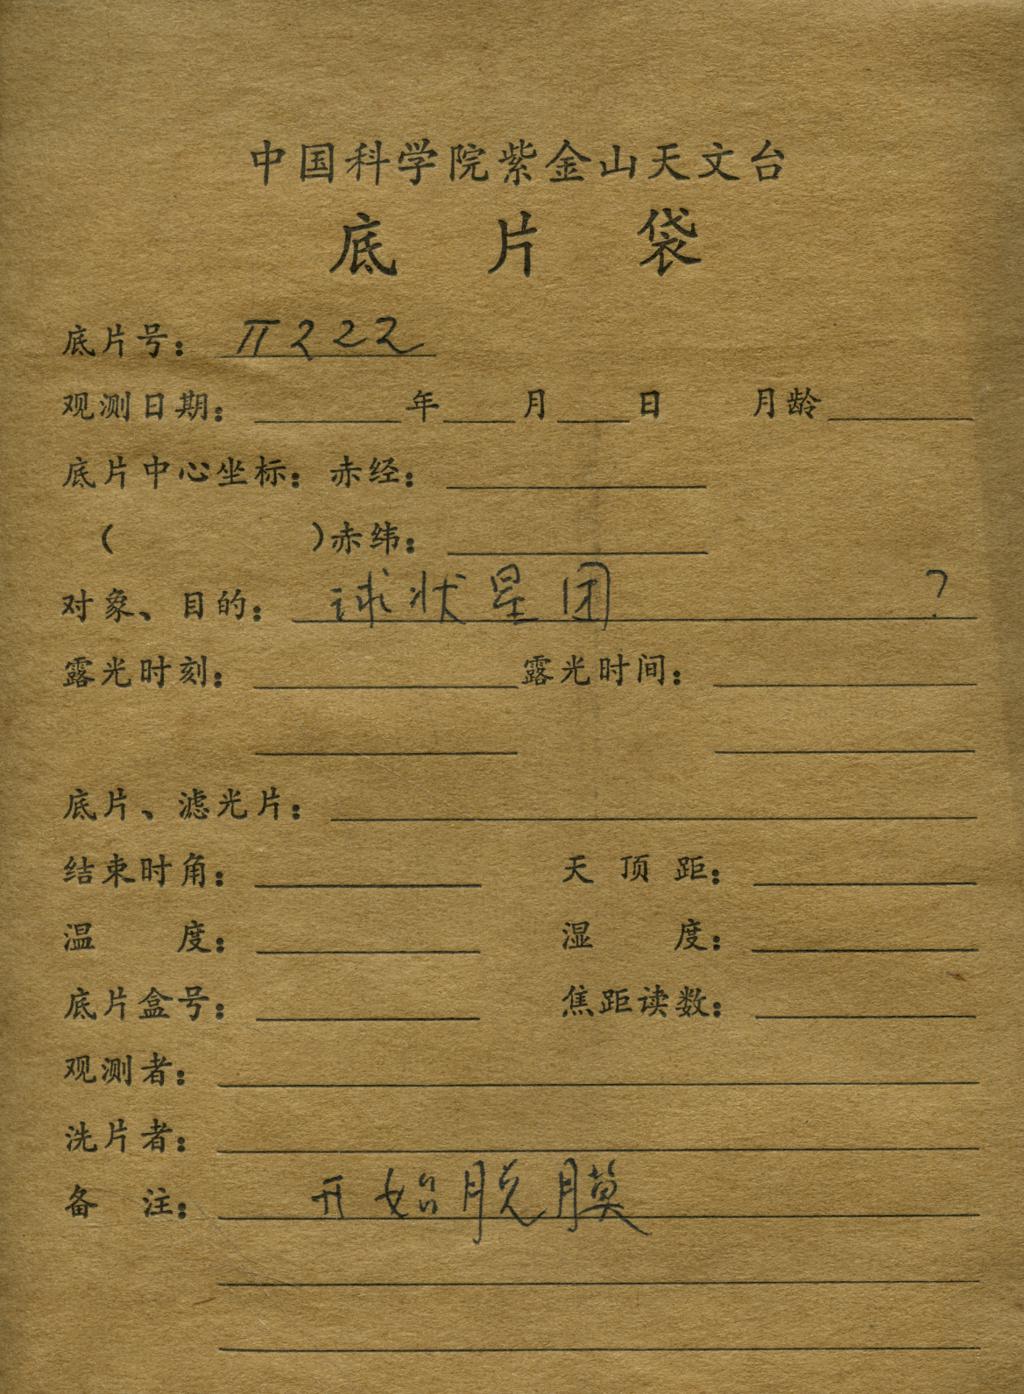 中国科学院紫金山天文台
底片袋
底片号： π222
观测日期：____年__月__日 月龄____
底片中心坐标：赤经：____
( )赤纬：____
对象、目的： 球状星团 ?
露光时刻：____露光时间：____
底片、滤光片：____
结束时角：____ 天顶距：____
温度：____ 湿度：____
底片盒号：____ 焦距读数：____
观测者：____
洗片者：____
备注： 开始脱膜